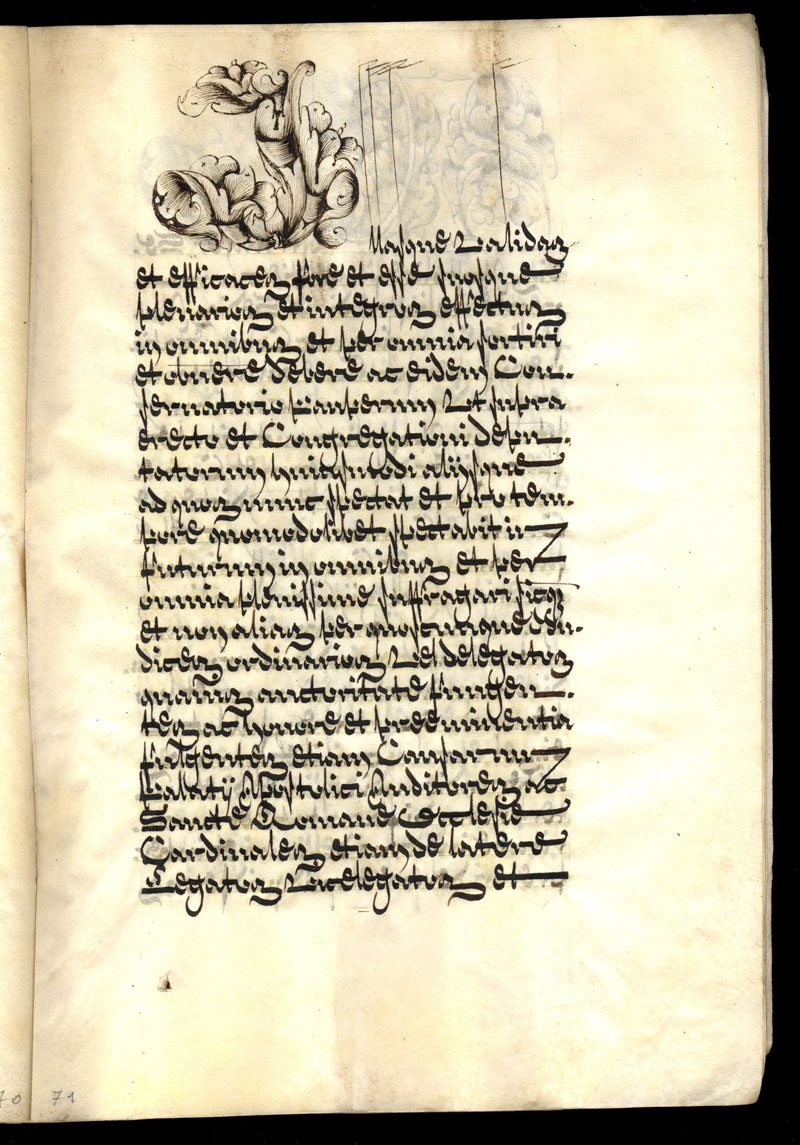 Illasque validas
et efficaces fore et esse suosque
plenarios et integros effectus
in omnibus et per omnia sortiri
et obtinere debere ac eidem Con-
servatorio Pauperum Ut supra
erecto et Congregationi depu-
tatorum huiusmodi alijsque
ad quos nunc spectat et pro tem-
pore quomodolibet spectabit in
futurum in omnibus et per
omnia plenissime suffragari sicq
et non alias per quoscunque Iu-
dices ordinarios Vel delegatos
quavis auctoritate fungen-
tes ac honore et preeminentia
fulgentes etiam Causarum
Palatij Apostolici Auditores ac
Sancte Romane Ecclesie
Cardinales etiam de latere
Legatos Vicelegatos et
70 71